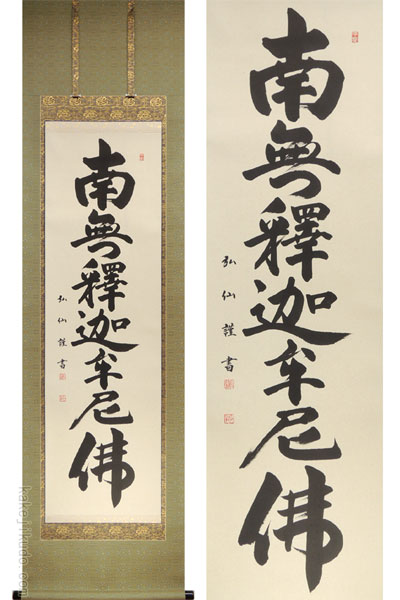 南無釋迦牟尼佛
弘仙謹書
南無釋迦牟尼佛
弘仙謹書
kakejikudo.com